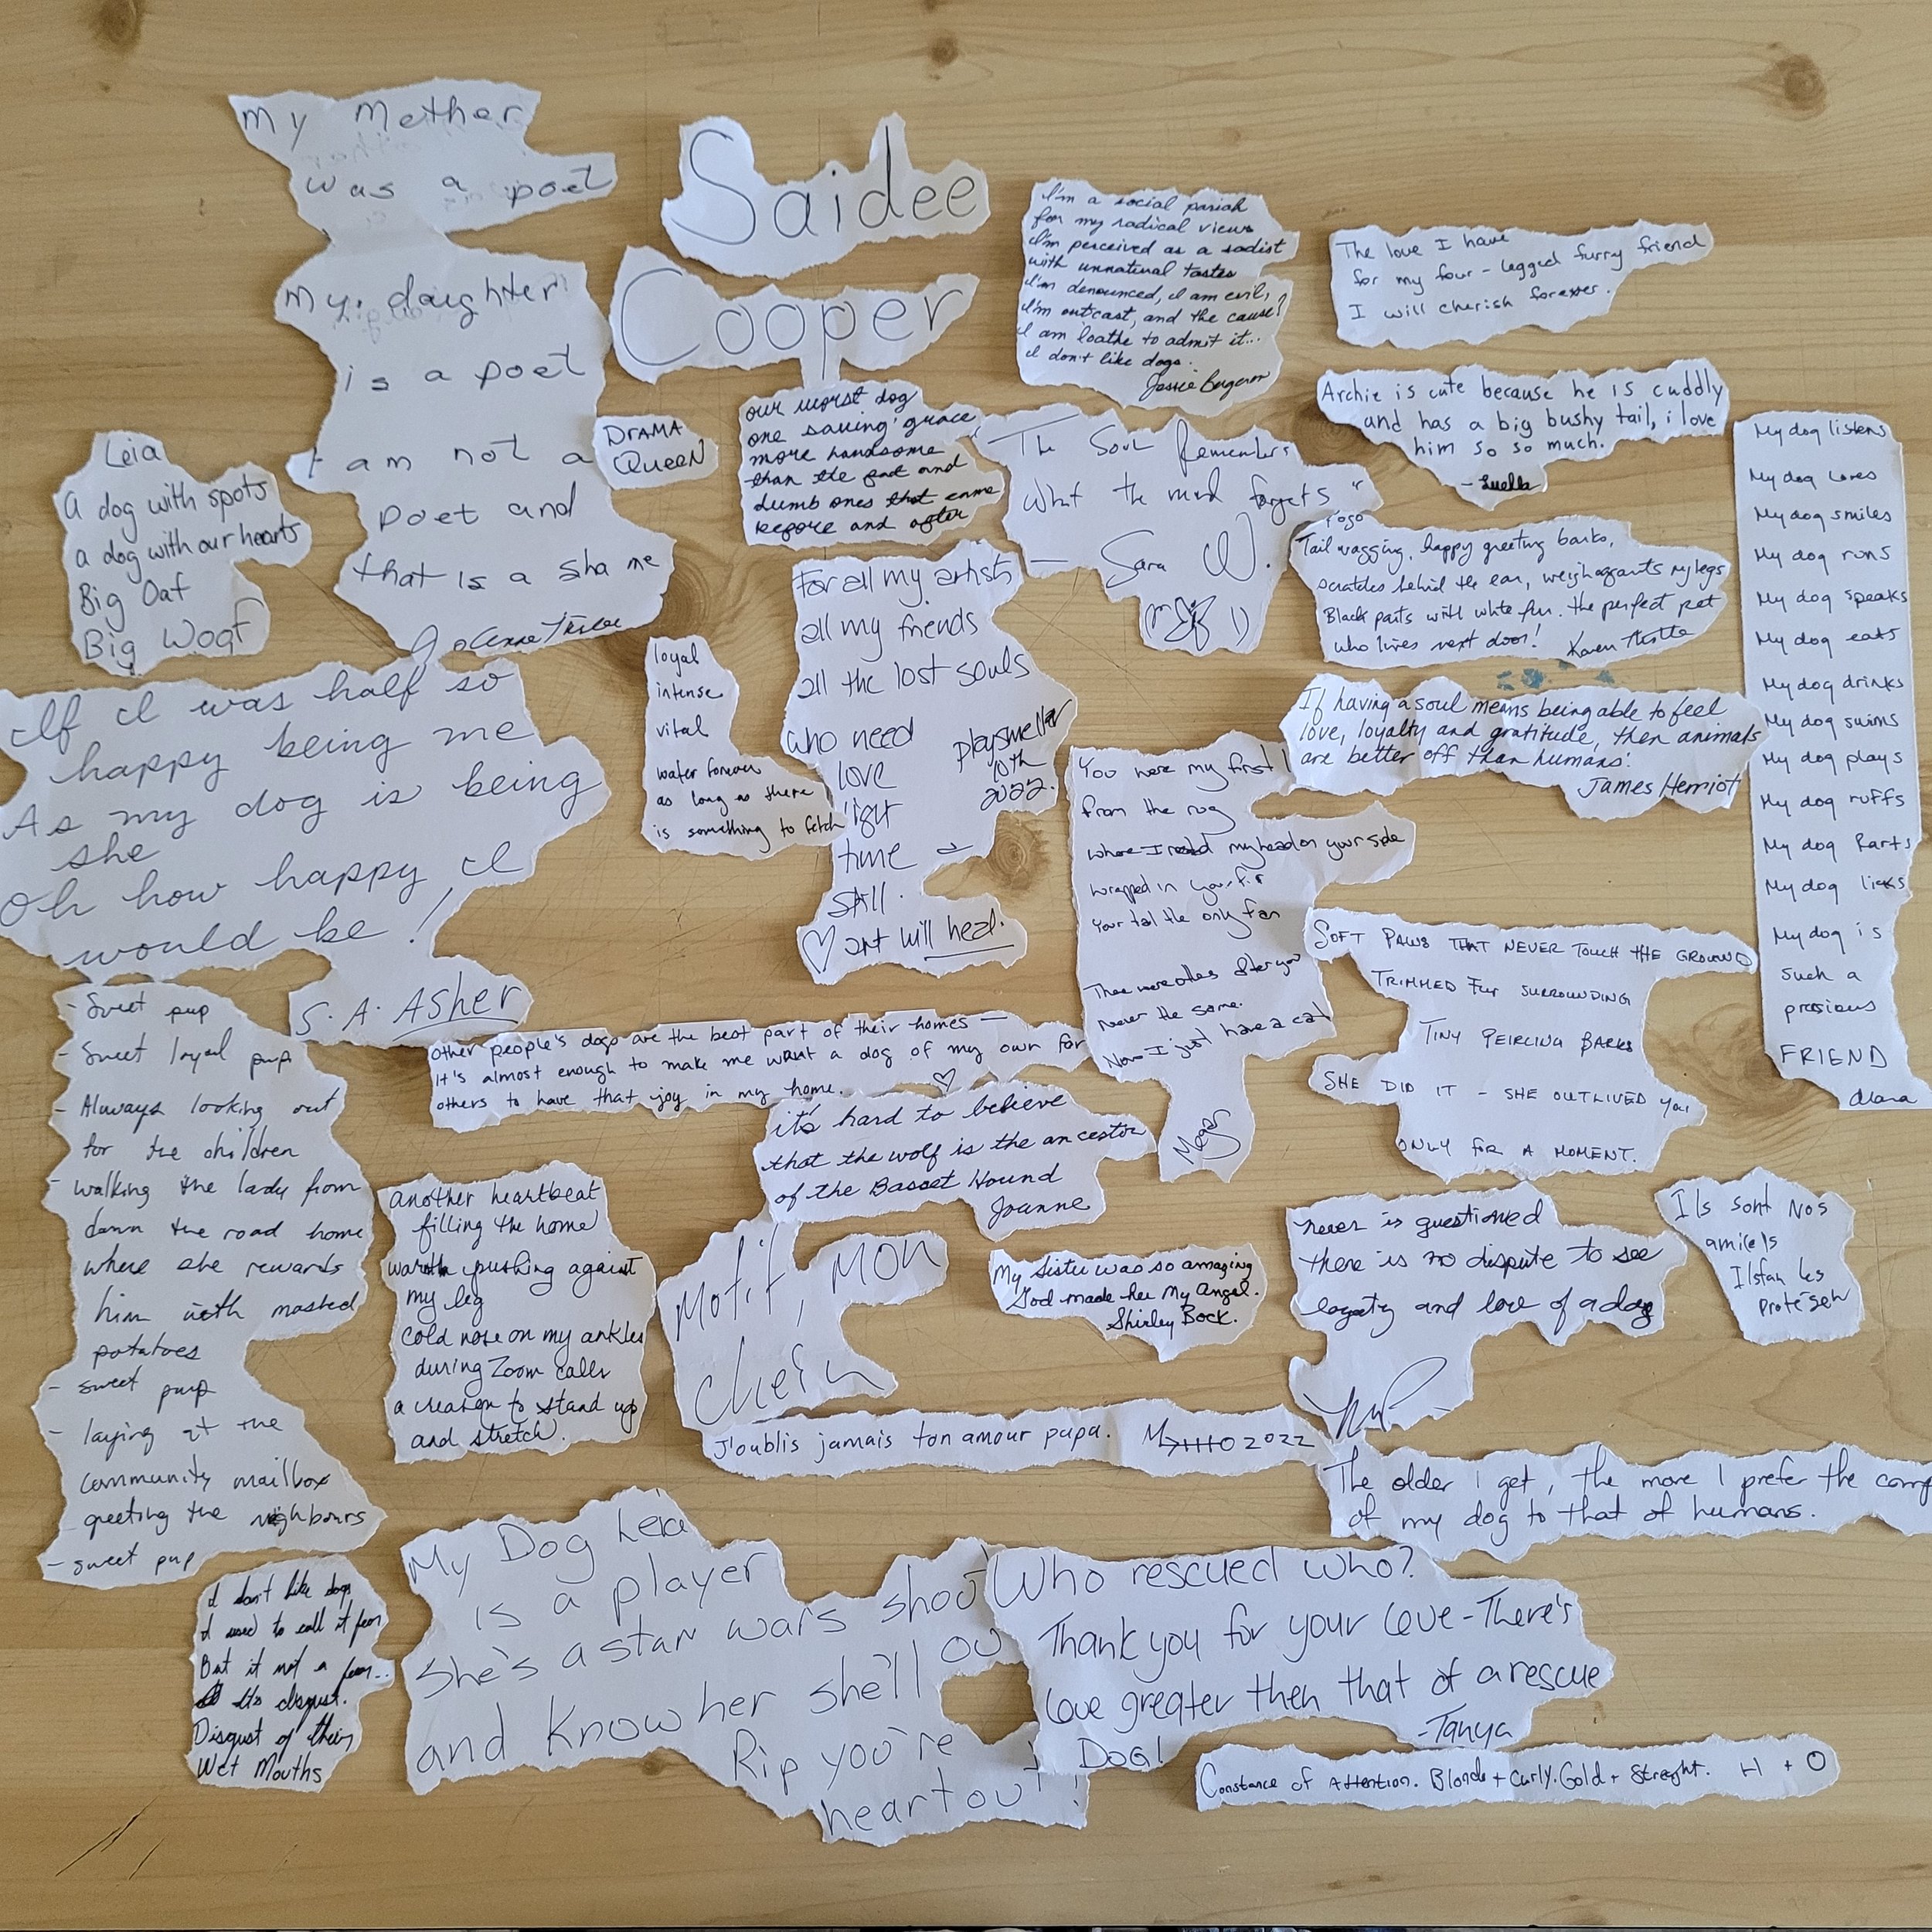 My Mother
was a poet
My daughter
is a poet
I am not a
poet and
that is a shame
Saidee
Cooper
I'm a social pariah
for my radical views
I'm perceived as a sadist
with unnatural tastes
I'm denounced, I am evil,
I'm outcast, and the cause?
I am loathe to admit it...
I don't like dogs.
Jessie
The love I have
for my four-legged furry friend
I will cherish forever.
Archie is cute because he is cuddly
and has a big bushy tail, i love
him so so much.
- Luella
DRAMA
QUEEN
our worst dog
one saving grace
more handsome
than the fat and
dumb ones that came
before and after
The Soul Remembers
What the mind forgets "
— Sara W.
Leia
A dog with spots
a dog with our hearts
Big Oaf
Big Woof
Pogo
Tail wagging, happy greeting barks,
scratches behind the ear, weigh against my legs
Black parts with white fur. the perfect pet
who lives next door! Karen
My dog listens
My dog loves
My dog smiles
My dog runs
My dog speaks
My dog eats
My dog drinks
My dog swims
My dog plays
My dog ruffs
My dog farts
My dog licks
My dog is
such a
presious
FRIEND
Alana
For all my artists
all my friends
all the lost souls
who need
love
light
time
still.
♡ art will heal.
playsmelter
10th
2022.
loyal
intense
vital
water forever
as long as there
is something to fetch
If I was half so
happy being me
As my dog is being
she
Oh how happy I
would be!
S. A. Asher
If having a soul means being able to feel
love, loyalty and gratitude, then animals
are better off than humans.
James Herriot
You were my first
from the rug
where I rested my head on your side
wrapped in your fur
Your tail the only fan
There were others after you
Never the same.
Now I just have a cat
Megan
SOFT PAWS THAT NEVER TOUCH THE GROUND
TRIMMED FUR SURROUNDING
TINY PEIRCING BARKS
SHE DID IT - SHE OUTLIVED YOU
ONLY FOR A MOMENT.
- Sweet pup
- Sweet loyal pup
- Always looking out
for the children
- walking the lady from
down the road home
where she rewards
him with mashed
potatoes
- sweet pup
- laying at the
community mailbox
greeting the neighbours
- sweet pup
other people's dogs are the best part of their homes —
it's almost enough to make me want a dog of my own for
others to have that joy in my home. ♡
it's hard to believe
that the wolf is the ancestor
of the Basset Hound
Joanne
another heartbeat
filling the home
warmth pushing against
my leg
cold nose on my ankles
during Zoom calls
a reason to stand up
and stretch.
Motif, MON
chein
My Sister was so amazing
God made her My Angel.
Shirley Bock.
never is questioned
there is no dispute to see
loyalty and love of a dog
Ils sont Nos
amicls
Ilstan les
protéseh
J'oublis jamais ton amour papa. 2022
The older I get, the more I prefer the comp
of my dog to that of humans.
I don't like dogs
I used to call it fear
But it not a fear...
Its disgust.
Disgust of their
Wet Mouths
My Dog Leia
is a player
She's a star wars shoo
and know her she'll ou
Rip you're
heart out!
Who rescued who?
Thank you for your love - There's
love greater then that of a rescue
DOG!
-Tanya
Constance of Attention. Blonde + Curly. Gold + Streight. H + O